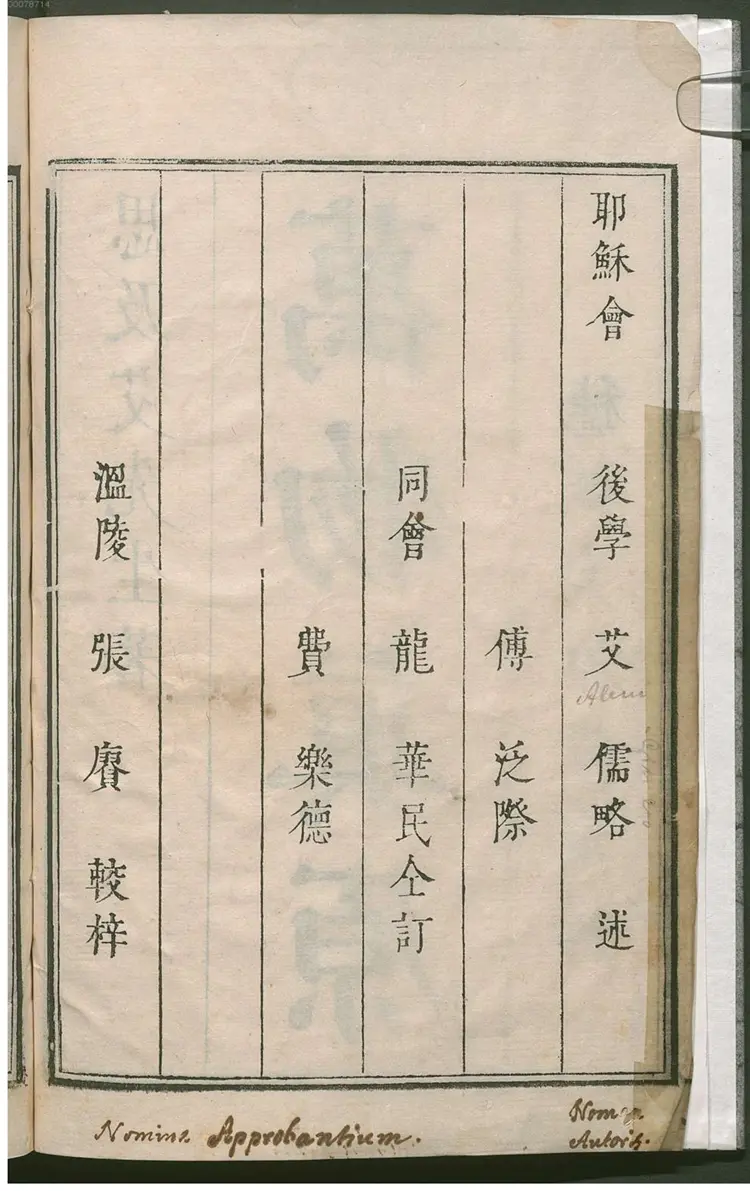 耶穌會 後學 艾 儒略 述
傅 泛際
同會 龍 華民 仝訂
費 樂德
溫陵 張 賡 較梓
Nomina Approbantium.
Nomen
Autoris.
00078714